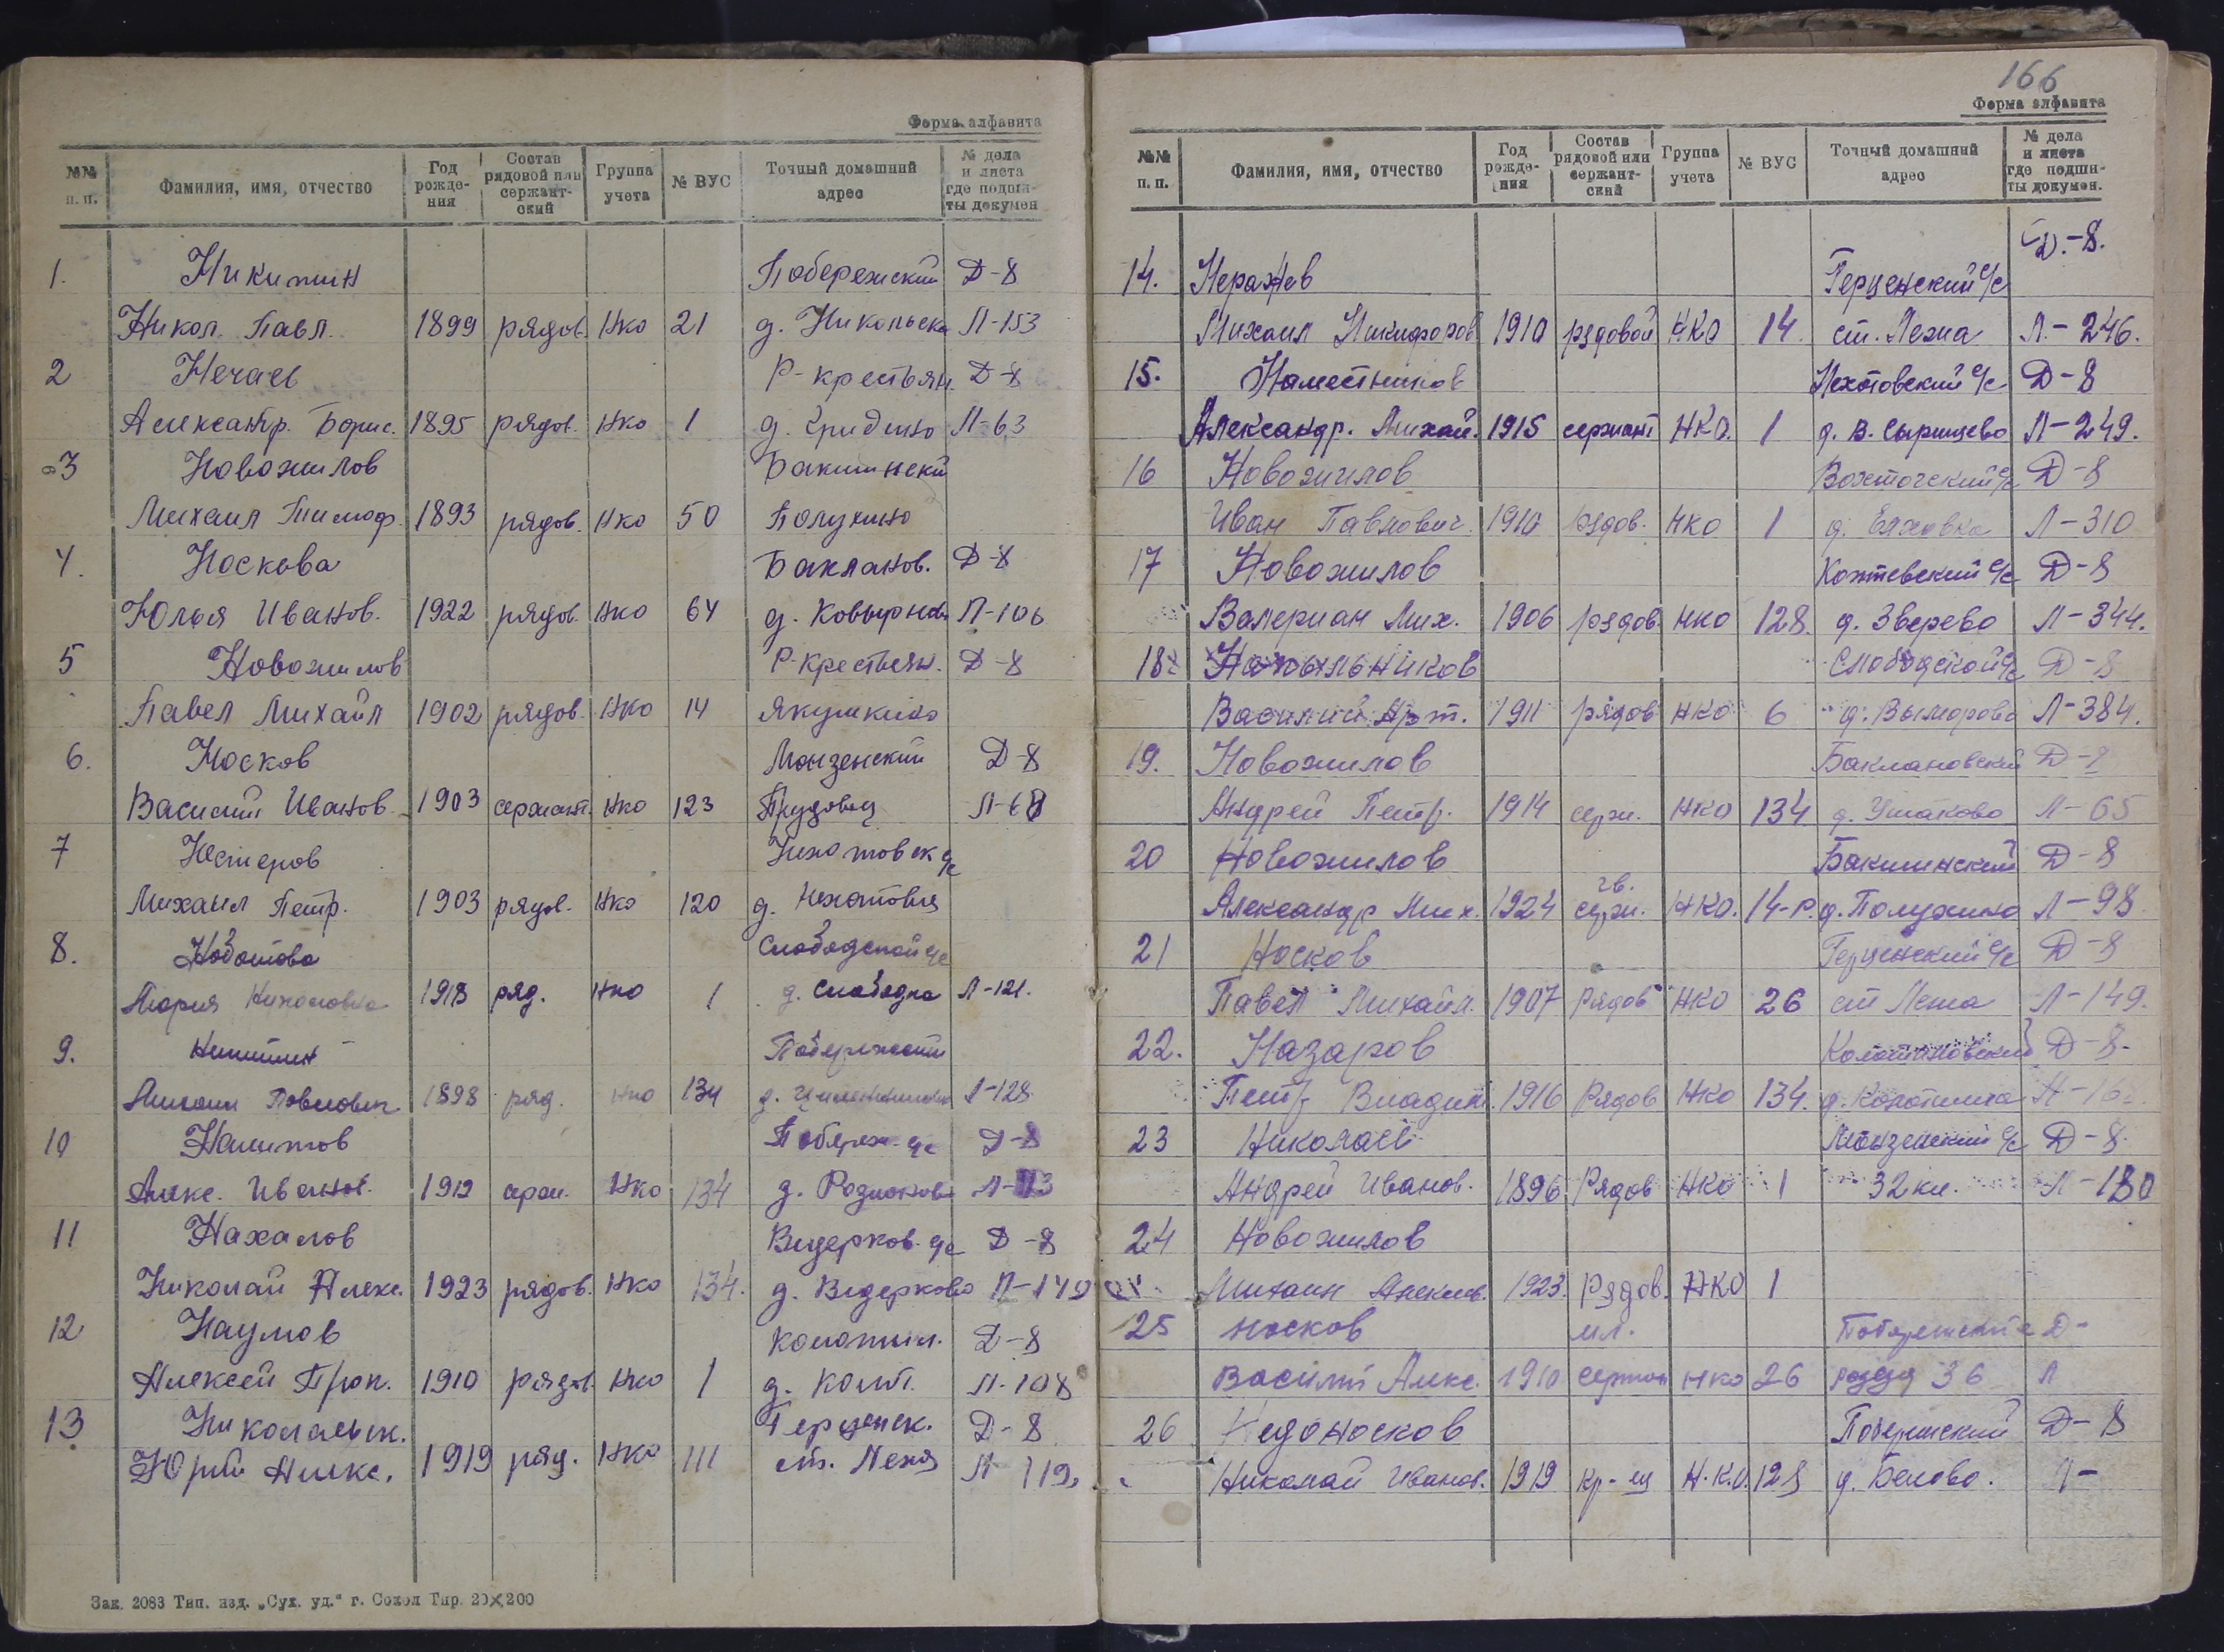 Форма алфавита
№№ п. п. Фамилия, имя, отчество Год рождения Состав рядовой или сержантский Группа учета № ВУС Точный домашний адрес № дела и листа где подшиты докумен
1. Никитин Побережский Д-8
Никол. Павл. 1899 рядов. НКО 21 д. Никольска Л-153
2 Нечаев Р-крестьян. Д-8
Александр. Борис. 1895 рядов. НКО 1 Л-63
3 Новожилов Бакшински
Михаил Тимоф. 1893 рядов. НКО 50 Полухино
4. Носкова Бакланов. Д-8
Юлия Иванов. 1922 рядов. НКО 64 д. Л-106
5 Новожилов Р-крестьян. Д-8
Павел Михайл 1902 рядов. НКО 14 Якушкино
6. Носков Монзенский Д-8
Василий Иванов. 1903 сержант. НКО 123 Прудовец
7 Нестеров с/с
Михаил Петр. 1903 рядов. НКО 120 д.
8. Слободской с/с
Мария 1918 ряд. НКО 1 д. Слободка Л-121.
9. Никитин Побережский
Павлович 1898 ряд. НКО 134 д. Л-128
10 Побереж. с/с Д-8
Алекс. Иванов. 1912 серж. НКО 134 д. Родионово
11 Нахалов Ведерков. с/с Д-8
Николай Алекс. 1923 рядов. НКО 134. д. Ведерково Л-140
12 Наумов Д-8
Алексей Прок. 1910 рядов. НКО 1 д. Л-108
13 Николаевск. Герценск. Д-8
Юрий Алекс. 1919 ряд. НКО 111 ст. Лежа Л 119.
Зак. 2083 Тип. изд. „Сух. уд.“ г. Сокол Тир. 20×200
166
Форма алфавита
№№ п. п. Фамилия, имя, отчество Год рождения Состав рядовой или сержантский Группа учета № ВУС Точный домашний адрес № дела и листа где подшиты докумен.
Д.-8.
14. Неражев Герценский с/с
Михаил Никифоров 1910 рядовой НКО 14. ст. Лежа Л.-246.
15. Наместников с/с Д-8
Александр. Михай. 1915 сержант НКО. 1 Л-249.
16 Новожилов Вохтогский с/с Д-8
Иван Павлович. 1910 рядов. НКО 1 д. Л-310
17 Новожилов с/с Д-8
Валериан Мих. 1906 рядов. НКО 128. д. Зверево Л-344.
18. Слободской с/с Д-8
Василий Арт. 1911 рядов НКО 6 д. Л-384.
19. Новожилов Баклановский Д-8
Андрей Петр. 1914 серж. НКО 134 д. Ушаково Л-65
20 Новожилов Бакшинский Д-8
Александр Мих. 1924 гв. серж. НКО. 14-Р. д. Полухино Л-98
21 Носков Герценский с/с Д-8
Павел Михайл. 1907 Рядов НКО 26 ст Лежа Л-149.
22. Назаров Д-8.
Петр Владим. 1916 Рядов НКО 134. д.
23 Николаев Монзенский с/с Д-8.
Андрей Иванов. 1896 Рядов НКО 1 32 км. Л-180
24 Новожилов
Михаил Алексеев. 1923. Рядов. НКО 1
25 Носков мл. Побережский Д-
Василий Алекс. 1910 сержан НКО 26 разезд 36 Л
26 Недоносков Побережский Д-8
Николай Иванов. 1919 кр-ец Н.К.О. 128 д. Белово. Л-